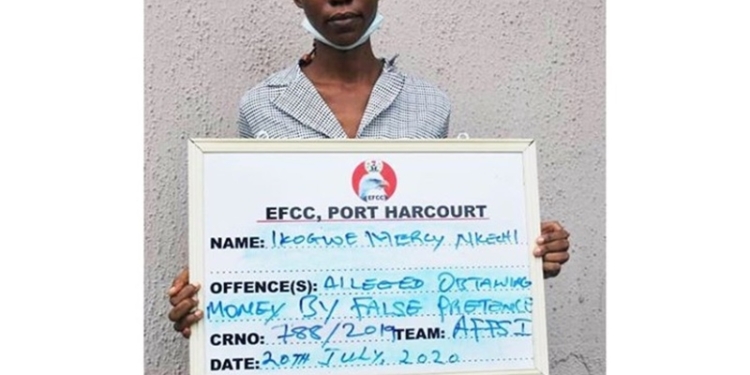 EFCC
EFCC, PORT HARCOURT
NAME: IKOGWE MERCY NKECHI
OFFENCE(S): ALLEGED OBTAINING
MONEY BY FALSE PRETENCE
CRNO: 788/2019 TEAM: AFFSI
DATE: 20TH JULY, 2020